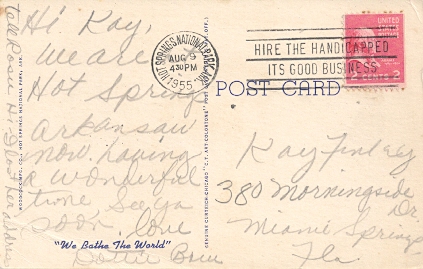 Hi Kay,
We are
Hot Springs
Arkansaw
now. having
a wonderful
time See ya
soon. love
Dottie
Tell Rosie Hi
address
"We Bathe The World"
WOODCOCK MFG. CO., HOT SPRINGS NATIONAL PARK, ARK.
GENUINE CURTEICH-CHICAGO "C.T. ART-COLORTONE" POST CARD
HOT SPRINGS NATIONAL PARK, ARK.
AUG 9
430 PM
1955
HIRE THE HANDICAPPED
ITS GOOD BUSINESS
UNITED
2 CENTS 2
POST CARD
Kay Finley
380 Morningside
Dr.
Miami Springs
Fla